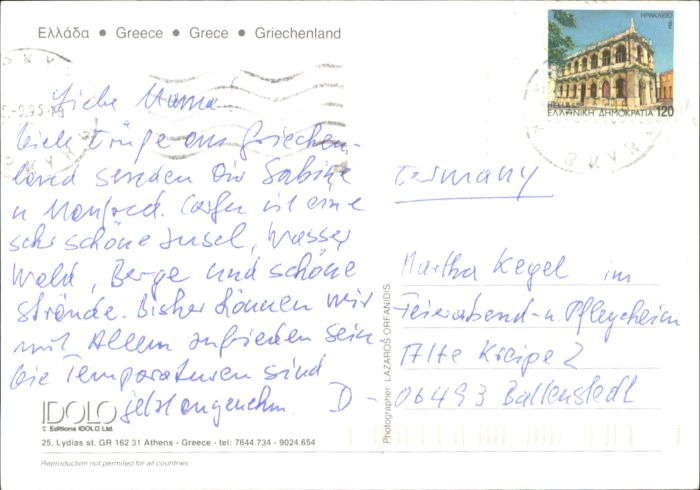 Ελλάδα • Greece • Grece • Griechenland
ΗΡΑΚΛΕΙΟ
HELLAS
ΕΛΛΗΝΙΚΗ ΔΗΜΟΚΡΑΤΙΑ 120
Liebe Mama!
Viele Grüße aus Griechen-
land senden Dir Sabine
u Manfred. ist eine
sehr schöne Insel, Wasser
Wald, Berge und schöne
Strände. Bisher können wir
mit Allem zufrieden sein.
Die Temperaturen sind
jetzt angenehm.
Germany
Martha Kegel im
Feierabend-u Pflegeheim
Alte Kreipe 2
D-06493 Ballenstedt
Photographer: LAZAROS ORFANIDIS
IDOLO
© Editions IDOLO Ltd.
25, Lydias st. GR 162 31 Athens - Greece - tel: 7644.734 - 9024.654
Reproduction not permited for all countries